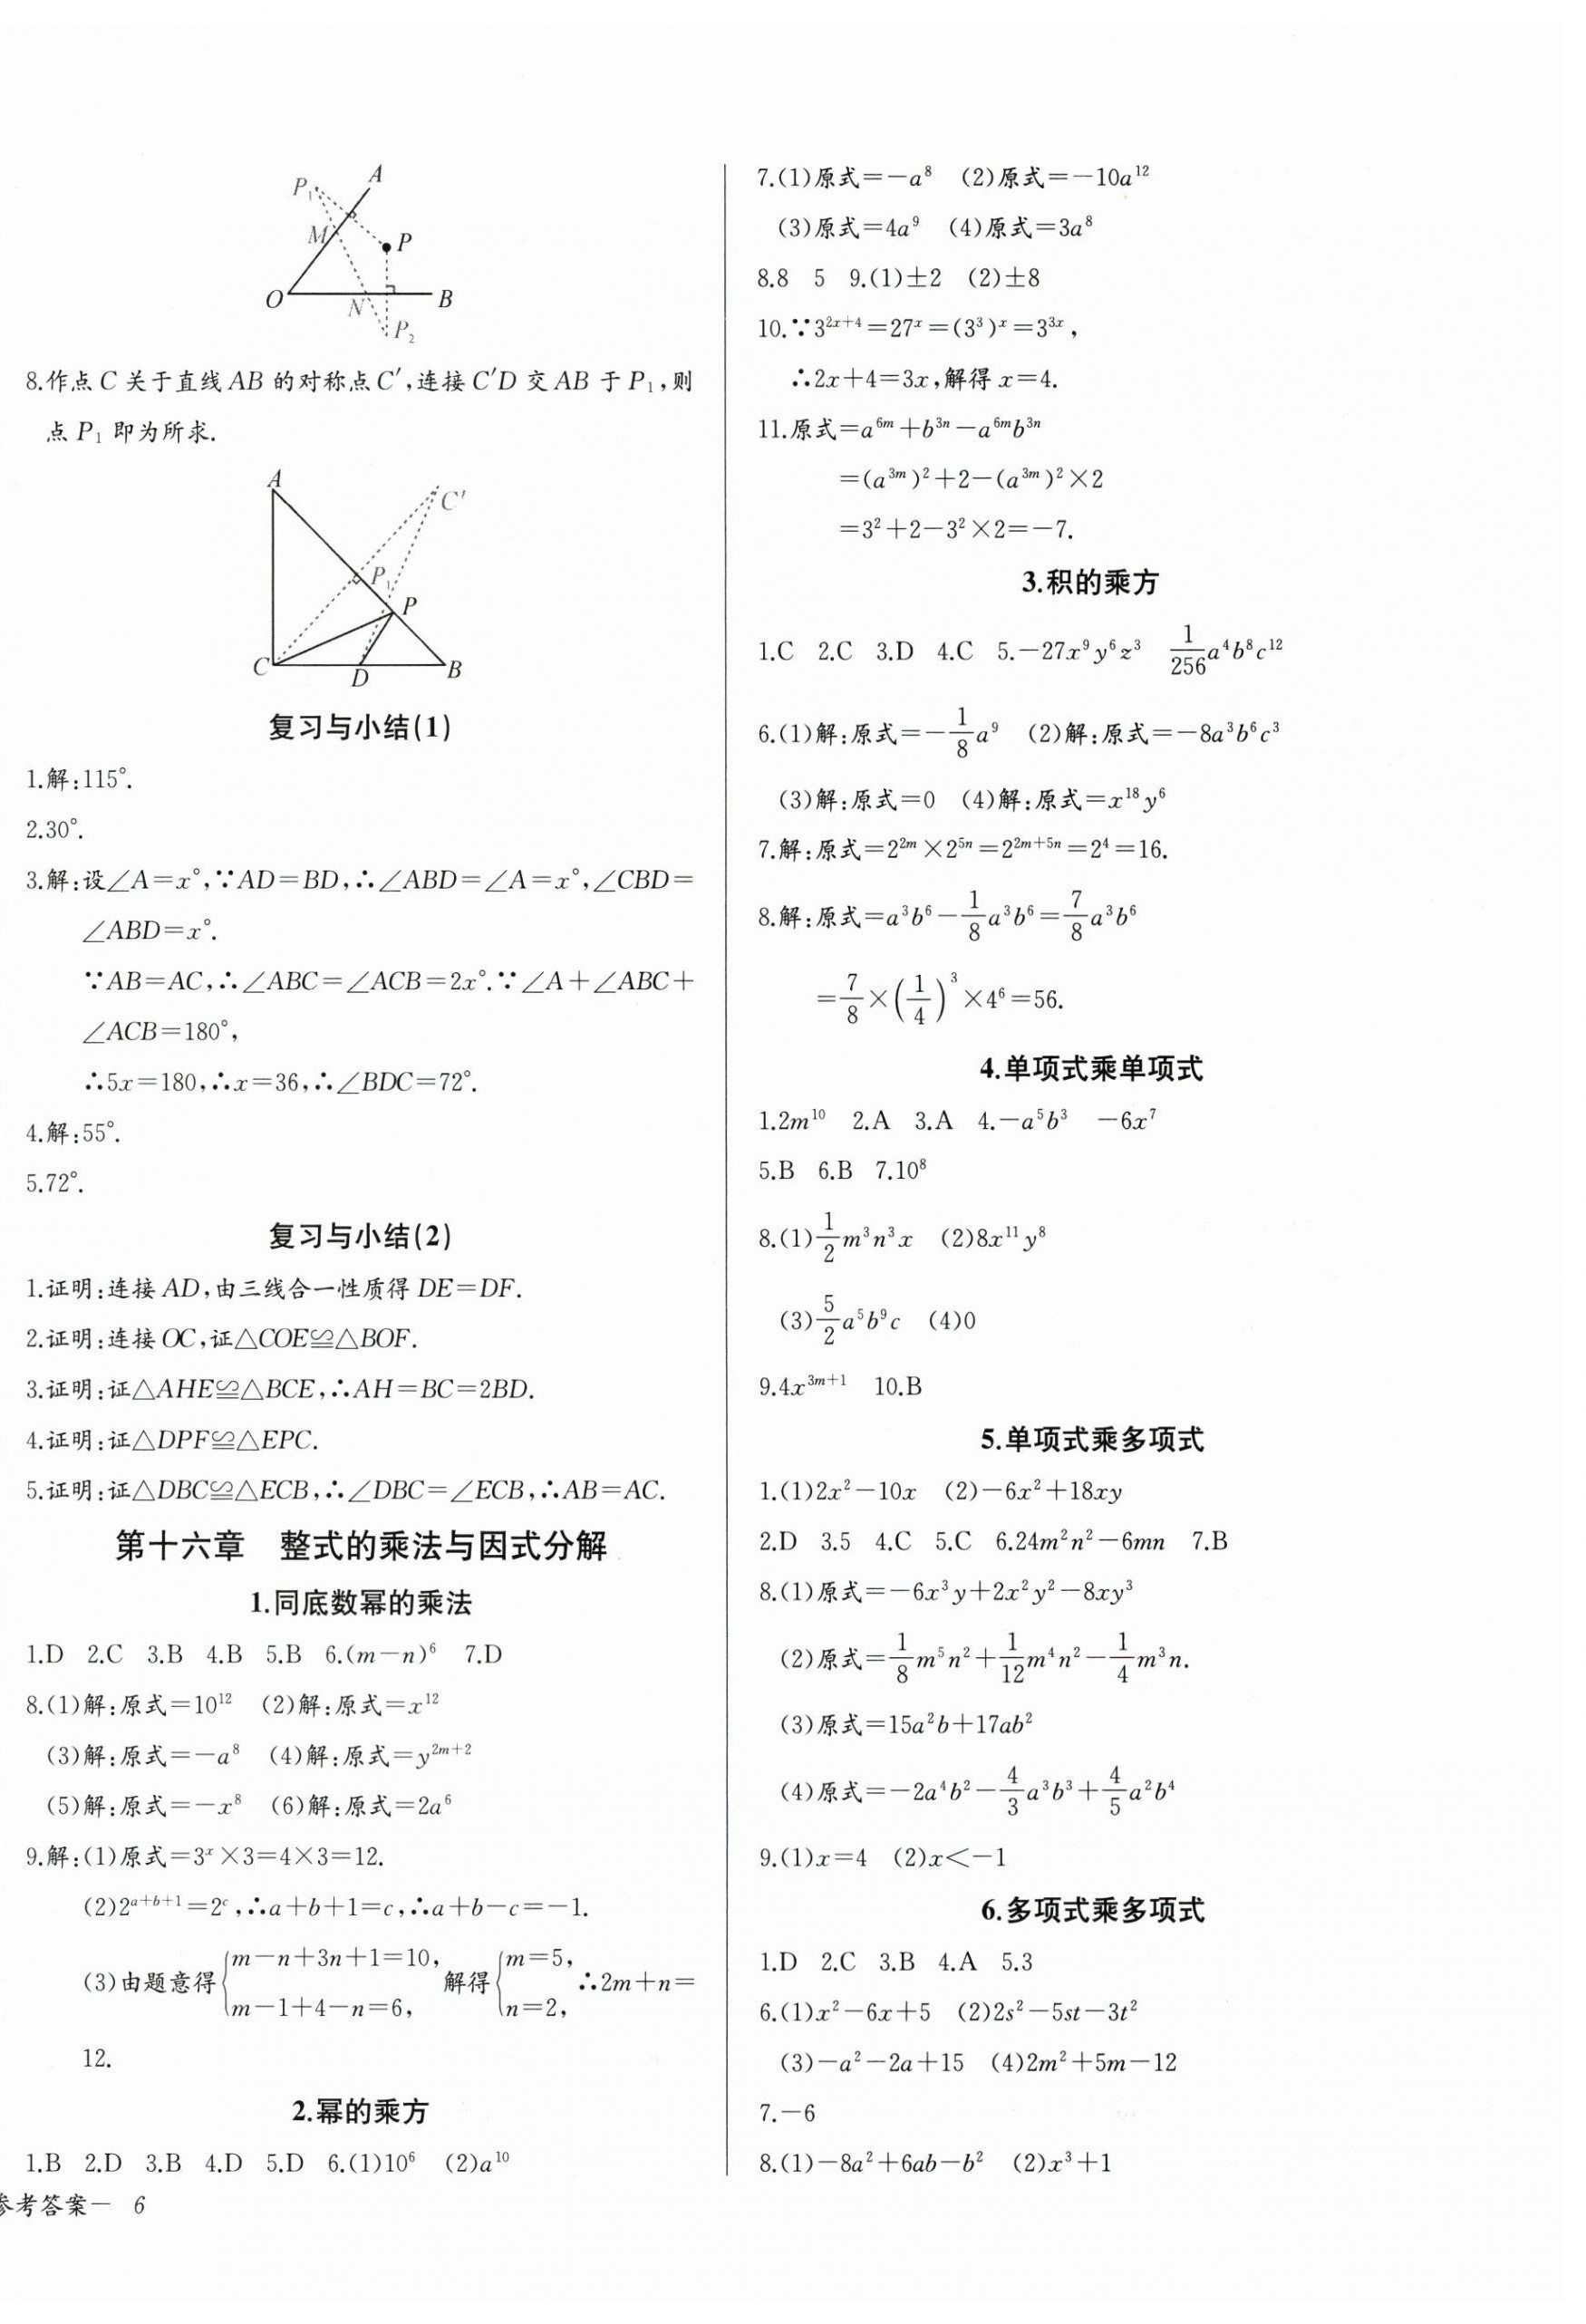 A
P₁
M
P
O
N
B
P₂
8.作点 C 关于直线 AB 的对称点 C′,连接 C′D 交 AB 于 P₁,则
点 P₁ 即为所求.
A
C′
P₁
P
C
D
B
复习与小结(1)
1.解:115°.
2.30°.
3.解:设∠A=x°,∵AD=BD,∴∠ABD=∠A=x°,∠CBD=
∠ABD=x°.
∵AB=AC,∴∠ABC=∠ACB=2x°.∵∠A+∠ABC+
∠ACB=180°,
∴5x=180,∴x=36,∴∠BDC=72°.
4.解:55°.
5.72°.
复习与小结(2)
1.证明:连接 AD,由三线合一性质得 DE=DF.
2.证明:连接 OC,证△COE≌△BOF.
3.证明:证△AHE≌△BCE,∴AH=BC=2BD.
4.证明:证△DPF≌△EPC.
5.证明:证△DBC≌△ECB,∴∠DBC=∠ECB,∴AB=AC.
第十六章 整式的乘法与因式分解
1.同底数幂的乘法
1.D 2.C 3.B 4.B 5.B 6.(m−n)⁶ 7.D
8.(1)解:原式=10¹² (2)解:原式=x¹²
(3)解:原式=−a⁸ (4)解:原式=y^{2m+2}
(5)解:原式=−x⁸ (6)解:原式=2a⁶
9.解:(1)原式=3^x×3=4×3=12.
(2)2^{a+b+1}=2^c,∴a+b+1=c,∴a+b−c=−1.
(3)由题意得{m−n+3n+1=10, m−1+4−n=6, 解得{m=5, n=2, ∴2m+n=
12.
2.幂的乘方
1.B 2.D 3.B 4.D 5.D 6.(1)10⁶ (2)a¹⁰
参考答案— 6
7.(1)原式=−a⁸ (2)原式=−10a¹²
(3)原式=4a⁹ (4)原式=3a⁸
8.8 5 9.(1)±2 (2)±8
10.∵3^{2x+4}=27^x=(3³)^x=3^{3x},
∴2x+4=3x,解得 x=4.
11.原式=a^{6m}+b^{3n}−a^{6m}b^{3n}
=(a^{3m})²+2−(a^{3m})²×2
=3²+2−3²×2=−7.
3.积的乘方
1.C 2.C 3.D 4.C 5.−27x⁹y⁶z³ 1/256 a⁴b⁸c¹²
6.(1)解:原式=−1/8 a⁹ (2)解:原式=−8a³b⁶c³
(3)解:原式=0 (4)解:原式=x¹⁸y⁶
7.解:原式=2^{2m}×2^{5n}=2^{2m+5n}=2⁴=16.
8.解:原式=a³b⁶−1/8 a³b⁶=7/8 a³b⁶
=7/8×(1/4)³×4⁶=56.
4.单项式乘单项式
1.2m¹⁰ 2.A 3.A 4.−a⁵b³ −6x⁷
5.B 6.B 7.10⁸
8.(1)1/2 m³n³x (2)8x¹¹y⁸
(3)5/2 a⁵b⁹c (4)0
9.4x^{3m+1} 10.B
5.单项式乘多项式
1.(1)2x²−10x (2)−6x²+18xy
2.D 3.5 4.C 5.C 6.24m²n²−6mn 7.B
8.(1)原式=−6x³y+2x²y²−8xy³
(2)原式=1/8 m⁵n²+1/12 m⁴n²−1/4 m³n.
(3)原式=15a²b+17ab²
(4)原式=−2a⁴b²−4/3 a³b³+4/5 a²b⁴
9.(1)x=4 (2)x<−1
6.多项式乘多项式
1.D 2.C 3.B 4.A 5.3
6.(1)x²−6x+5 (2)2s²−5st−3t²
(3)−a²−2a+15 (4)2m²+5m−12
7.−6
8.(1)−8a²+6ab−b² (2)x³+1